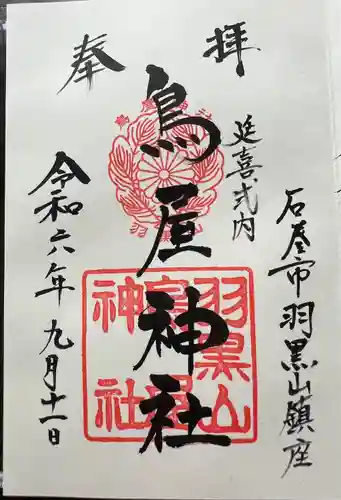 奉拝
延喜式内
石巻市羽黒山鎮座
鳥屋神社
令和六年九月十一日
羽黒山
鳥屋
神社